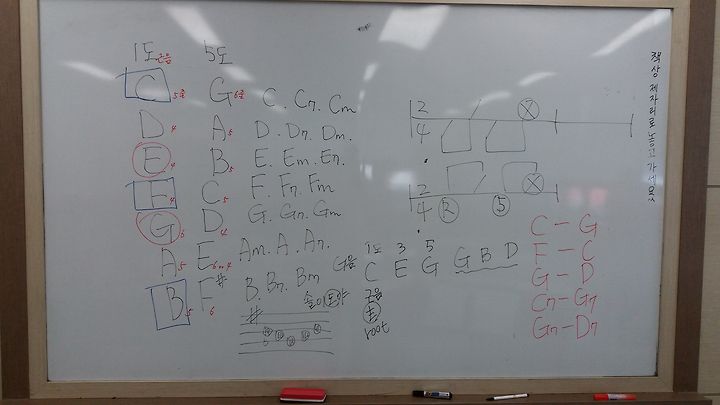 1도 근음 5도
C 5줄 G 6줄
D 4 A 5
E 4 B 5
F 4 C 5
G 6 D 4
A 5 E 6 or 4
B 5 F# 6
C . C7 . Cm
D . D7 . Dm .
E . Em . E7 .
F . F7 . Fm
G . G7 . Gm
Am . A . A7 .
B . B7 . Bm
#
2
4
X
2
4
R 5 X
1도 3 5
C E G G B D
근음
root
C - G
F - C
G - D
C7 - G7
G7 - D7
책상 제자리로 놓고 가세요